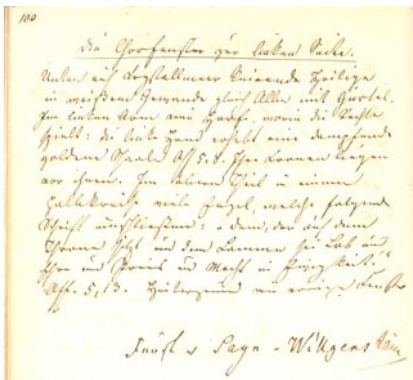 100
Die Chorfenster zur linken Seite.
Unten auf Krystallmeer knieende Heilige
in weißem Gewande gleich Allen mit Gürtel.
Im linken Arm eine Harfe, worin die Rechte
spielt: die linke Hand erhebt eine dampfende
goldene Schale Off 5.8. Ihre Kronen liegen
vor ihnen. Im oberen Theil in einem
Halbkreise viele Engel, welche folgende
Schrift umschließen: "dem, der auf dem
Throne sitzt und dem Lamme sei Lob und
Ehre und Preis und Macht in Ewigkeit."
Off. 5,13.
Fürst v Sayn-Wittgenstein